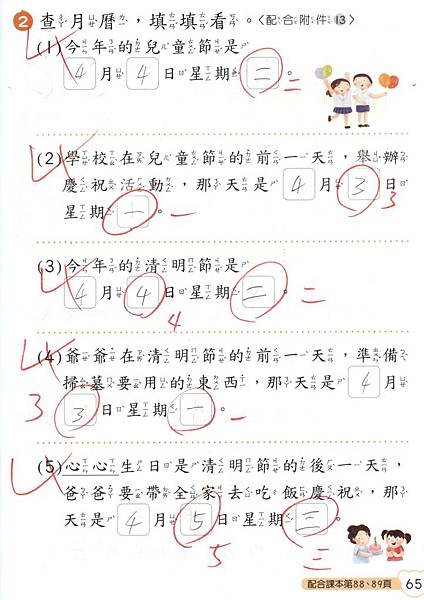 2 查月曆，填填看。〈配合附件13〉
(1)今年的兒童節是
4月4日星期二 二
(2)學校在兒童節的前一天，舉辦
慶祝活動，那天是4月3日 3
星期一 一
(3)今年的清明節是
4月4日星期二 二
4
(4)爺爺在清明節的前一天，準備
掃墓要用的東西，那天是4月
3 3日星期一 一
(5)心心生日是清明節的後一天，
爸爸要帶全家去吃飯慶祝，那
天是4月5日星期三
5 三
配合課本第88、89頁 65